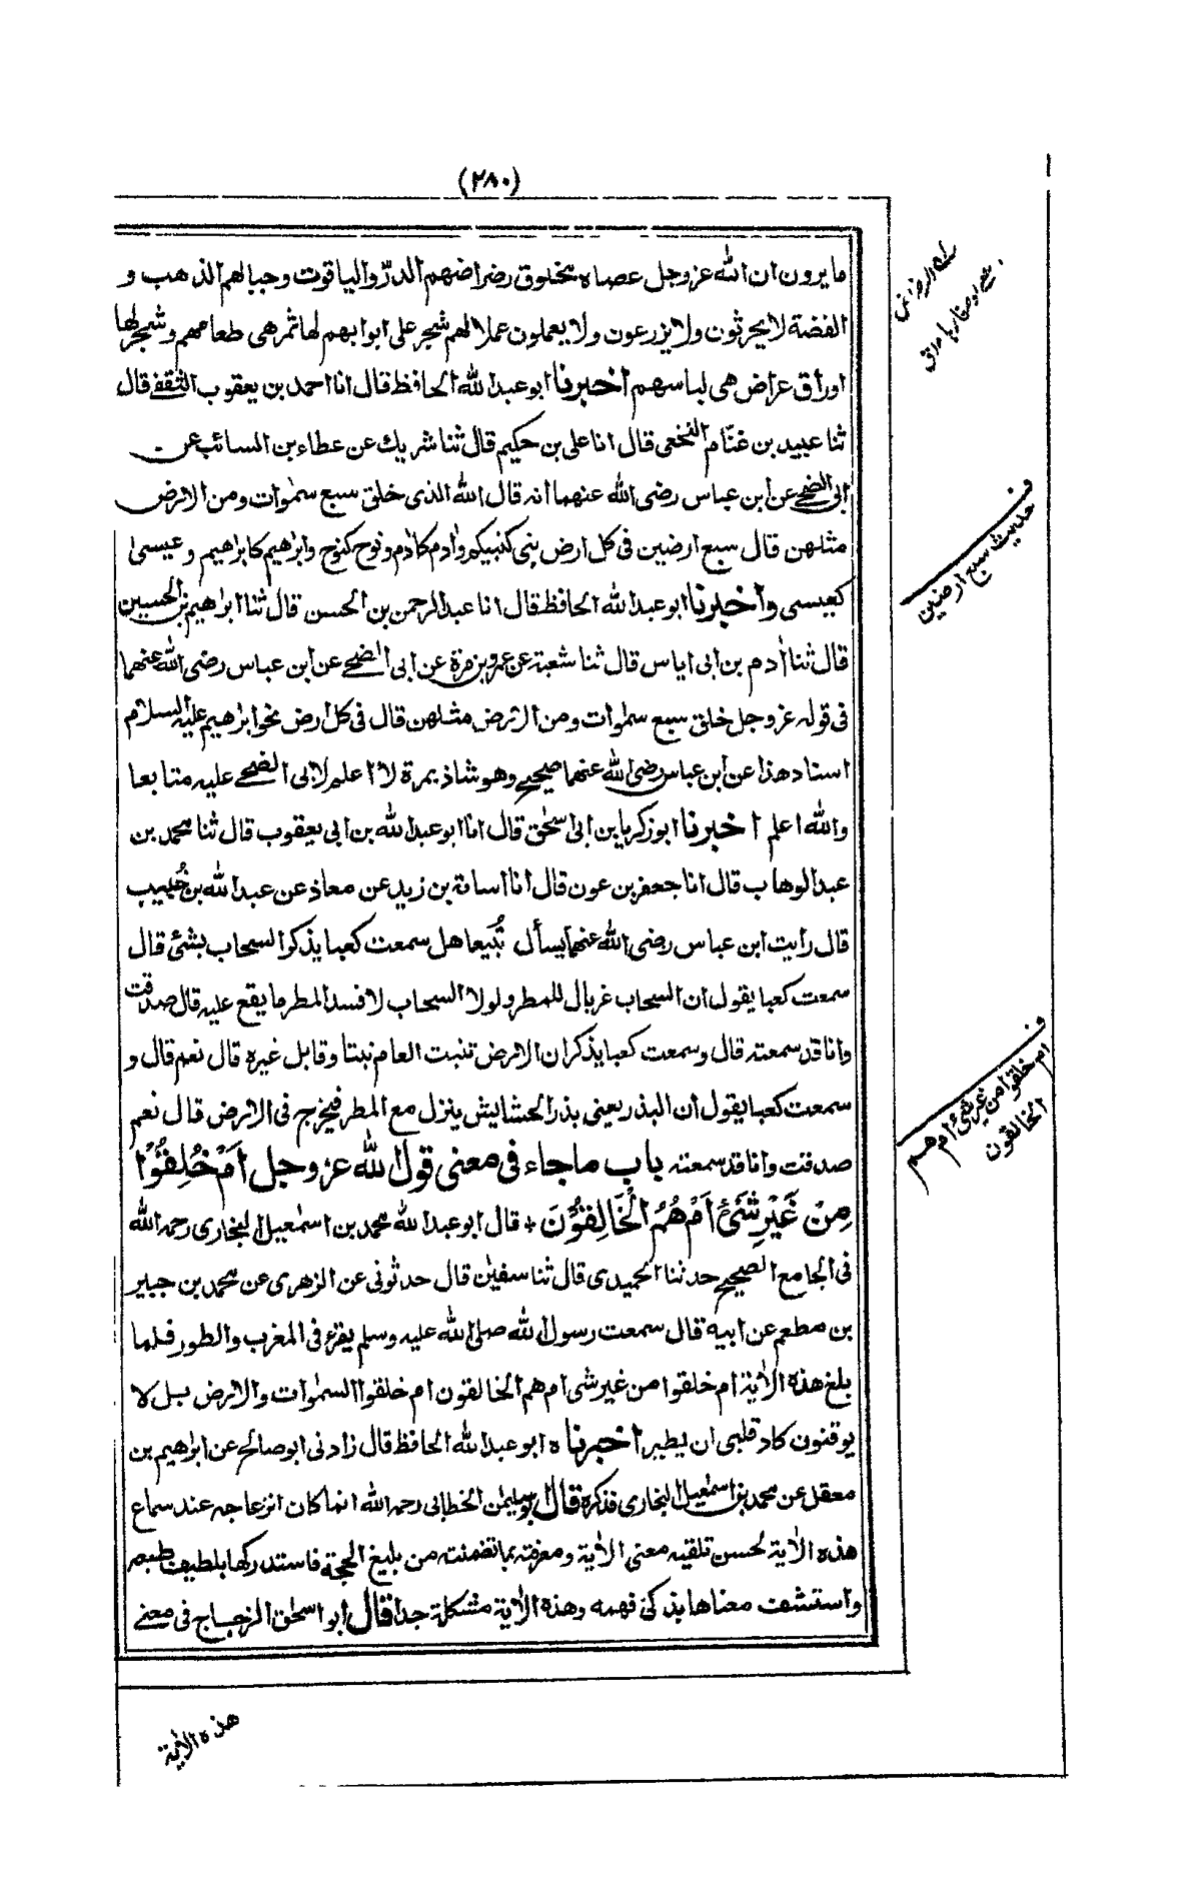 (٢٨٠)
ما يرون ان الله عز وجل عصاه مخلوق رضراضهم الدرّ والياقوت وجبالهم الذهب و
الفضة لا يحرثون ولا يزرعون ولا يعملون عملا لهم شجر على ابوابهم لها ثمر هى طعامهم وشجر لها
اوراق عراض هى لباسهم اخبرنا ابو عبد الله الحافظ قال انا احمد بن يعقوب الثقفے قال
ثنا عبيد بن غنّام النخعى قال انا على بن حكيم قال ثنا شريك عن عطاء بن السائب عن
ابى الضحے عن ابن عباس رضى الله عنهما انه قال الله الذى خلق سبع سمٰوات ومن الارض
مثلهن قال سبع ارضين فى كل ارض نبى كنبيكم واٰدم كاٰدم ونوح كنوح وابرٰهيم كابراهيم وعيسىٰ
كعيسى واخبرنا ابو عبد الله الحافظ قال انا عبد الرحمن بن الحسن قال ثنا ابرٰهيم بن الحسين
قال ثنا اٰدم بن ابى اياس قال ثنا شعبة عن عمرو بن مرة عن ابى الضحے عن ابن عباس رضى الله عنهما
فى قوله عز وجل خلق سبع سمٰوات ومن الارض مثلهن قال فى كل ارض نحو ابرٰهيم عليه السلام
اسناد هذا عن ابن عباس رضى الله عنهما صحيح وهو شاذ بمرة لا اعلم لابى الضحے عليه متابعا
والله اعلم اخبرنا ابو زكريا بن ابى اسحٰق قال انا ابو عبد الله بن ابى يعقوب قال ثنا محمد بن
عبد الوهاب قال انا جعفر بن عون قال انا اسامة بن زيد عن معاذ عن عبد الله بن خُبيب
قال رأيت ابن عباس رضى الله عنهما يسأل تُبَيعا هل سمعت كعبا يذكر السحاب بشئ قال
سمعت كعبا يقول ان السحاب غربال للمطر ولولا السحاب لا فسد المطر ما يقع عليه قال صدقت
وانا قد سمعته قال وسمعت كعبا يذكر ان الارض تنبت العام نبتا وقابل غيره قال نعم قال و
سمعت كعبا يقول ان البذر يعنى بذر الحشايش ينزل مع المطر فيخرج فى الارض قال نعم
صدقت وانا قد سمعته باب ما جاء فى معنى قول الله عز وجل اَمْ خُلِقُوْا
مِنْ غَيْرِ شَىْءٍ اَمْ هُمُ الْخَالِقُوْنَ + قال ابو عبد الله محمد بن اسمٰعيل البخارى رحمه الله
فى الجامع الصحيح حدثنا الحميدى قال ثنا سفيٰن قال حدثونى عن الزهرى عن محمد بن جبير
بن مطعم عن ابيه قال سمعت رسول الله صلى الله عليه وسلم يقرء فى المغرب والطور فلما
بلغ هذه الاٰية ام خلقوا من غير شى ام هم الخالقون ام خلقوا السمٰوات والارض بل لا
يوقنون كاد قلبى ان يطير اخبرناه ابو عبد الله الحافظ قال زادنى ابو صالح عن ابرٰهيم بن
معقل عن محمد بن اسمٰعيل البخارى فذكره قال ابو سليمٰن الخطابى رحمه الله انما كان انزعاجه عند سماع
هذه الاٰية لحسن تلقيه معنى الاٰية ومعرفته بما تضمنته من بليغ الحجة فاستدركها بلطيف طبعه
واستشف معناها بذكىّ فهمه وهذه الاٰية مشكلة جدا قال ابو اسحٰق الزجاج فى معنے
هذه الاٰية
ف
حديث سبع ارضين
ف
ام خلقوا من غير شئ ام هم
الخالقون